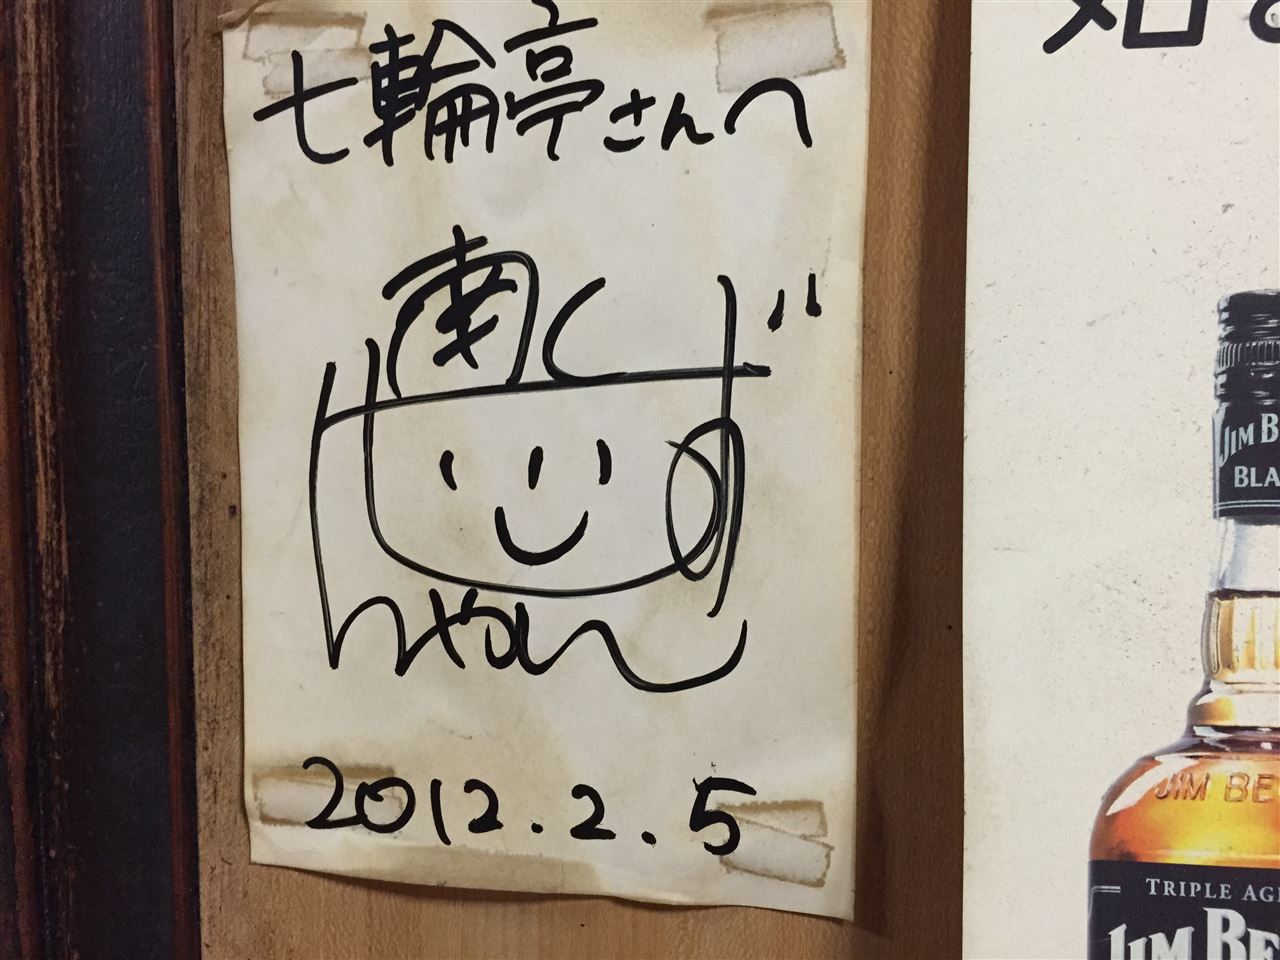 七輪亭さんへ
南
2012.2.5
JIM B
BLA
JIM BE
TRIPLE AG
JIM BE